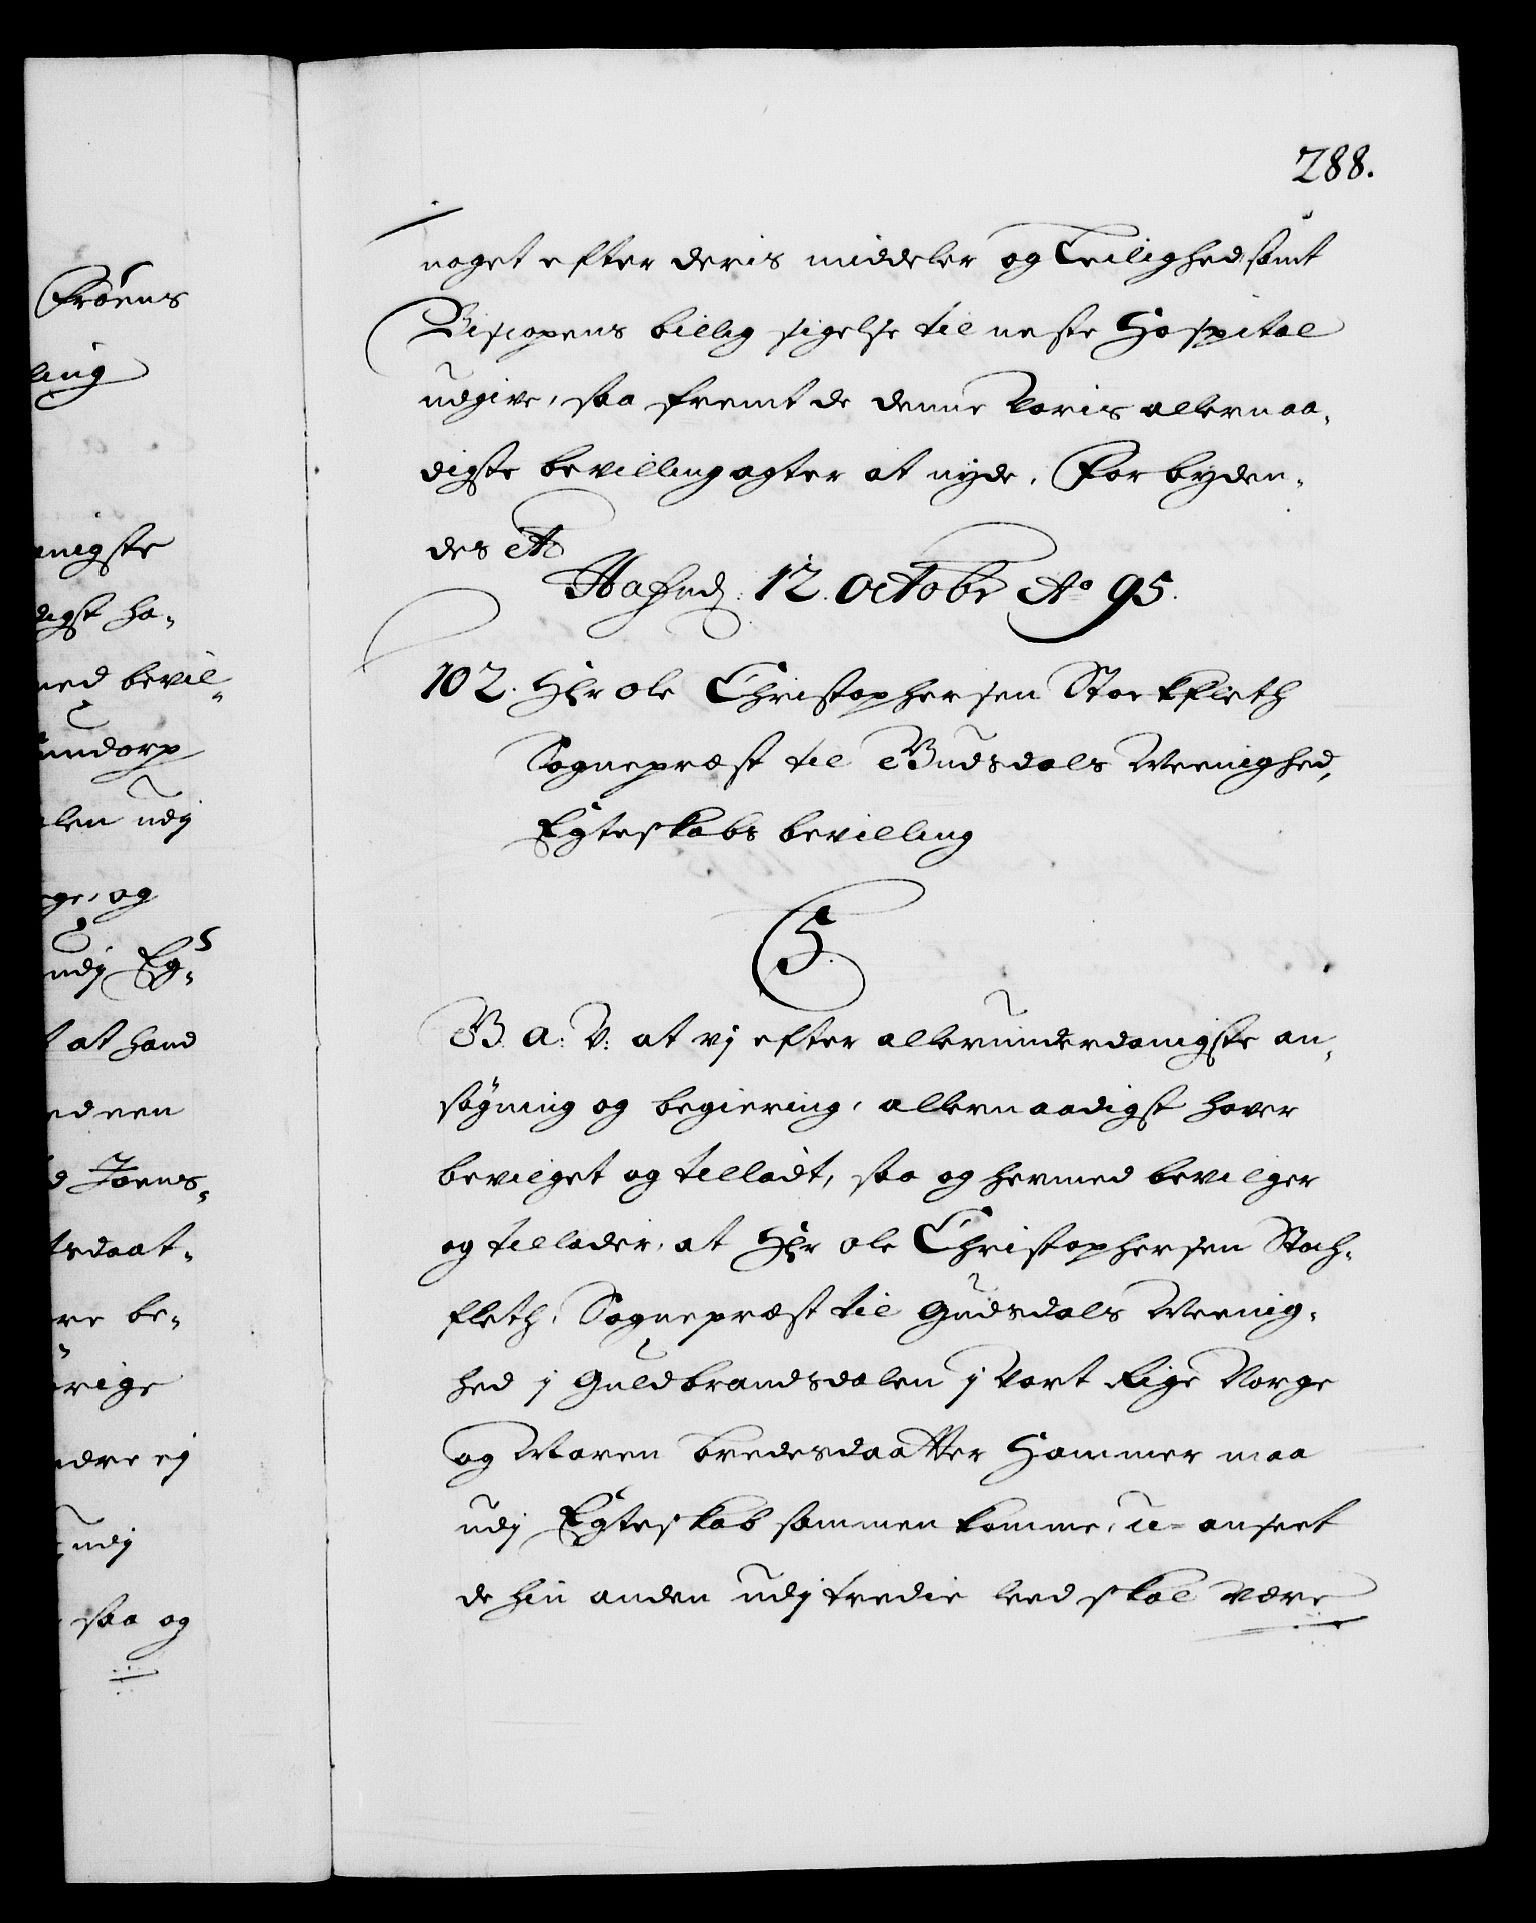 288.
noget efter deris middeler og Leilighed samt
Biscopens billig sigelse til neste Hospital
udgive, saa fremt de denne Voris allernaa-
digste bevilling agter at nyde, Forbyden-
des etc
Hafnd: 12. octobr Ao 95.
102. Hr ole Christophersen Stockfleth
Sognepræst til Budsdals Meenighed,
Egteskabs bevilling
5.
B. A: V: at vj efter allerunderdanigste an-
søgning og begiering, allernaadigst haver
bevilget og tilladt, saa og hermed bevilger
og tillader, at Hr ole Christophersen Stoch-
fleth, Sognepræst til Gudsdals Meenig-
hed j Guldbrandsdalen j Vort Rige Norge
og Maren bredesdaatter Hammer maa
udj Egteskab sammen komme, u-anseet
de hin anden udj tredie leed skal være
Frøens
ling
nigste
digst ha-
med bevil-
len udj
ge, og
udj Eg-
t at hand
Joens-
tsdaat-
re be-
ørige
ndre ej
udj
saa og